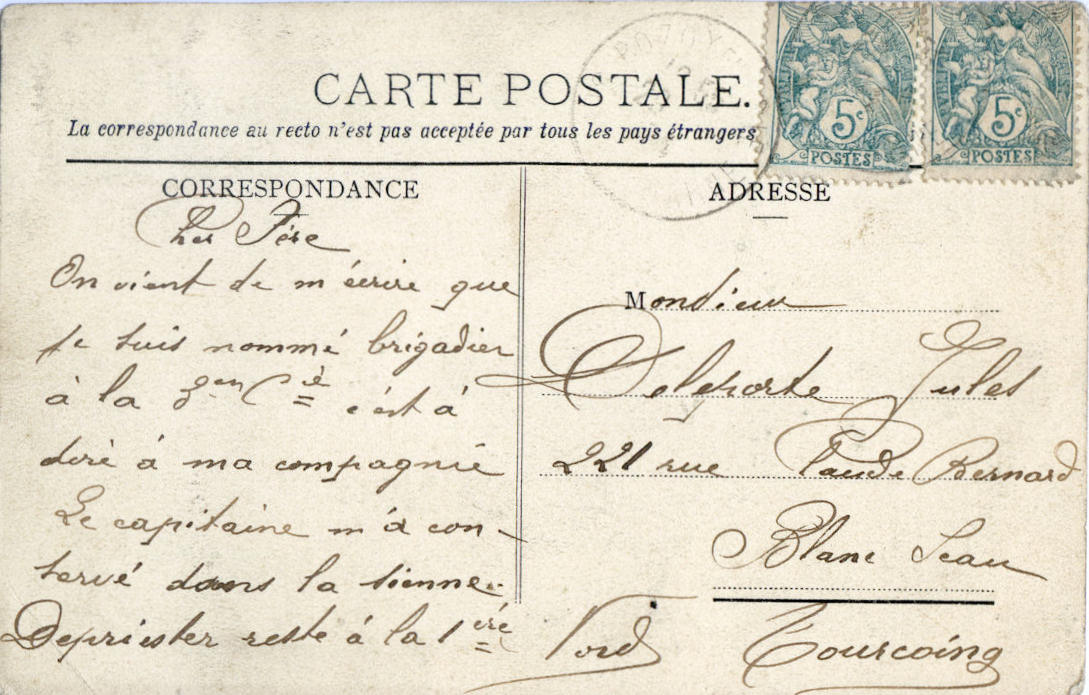 CARTE POSTALE.
La correspondance au recto n'est pas acceptée par tous les pays étrangers
CORRESPONDANCE
Cher Père
On vient de m'écrire que
je suis nommé brigadier
à la 3em Cie c'est à
dire à ma compagnie
Le capitaine m'a con-
servé dans la sienne.
Depriester reste à la 1ère
5c
POSTES
5c
POSTES
ADRESSE
Monsieur
Deleporte Jules
221 rue Claude Bernard
Blanc Seau
Tourcoing
Nord